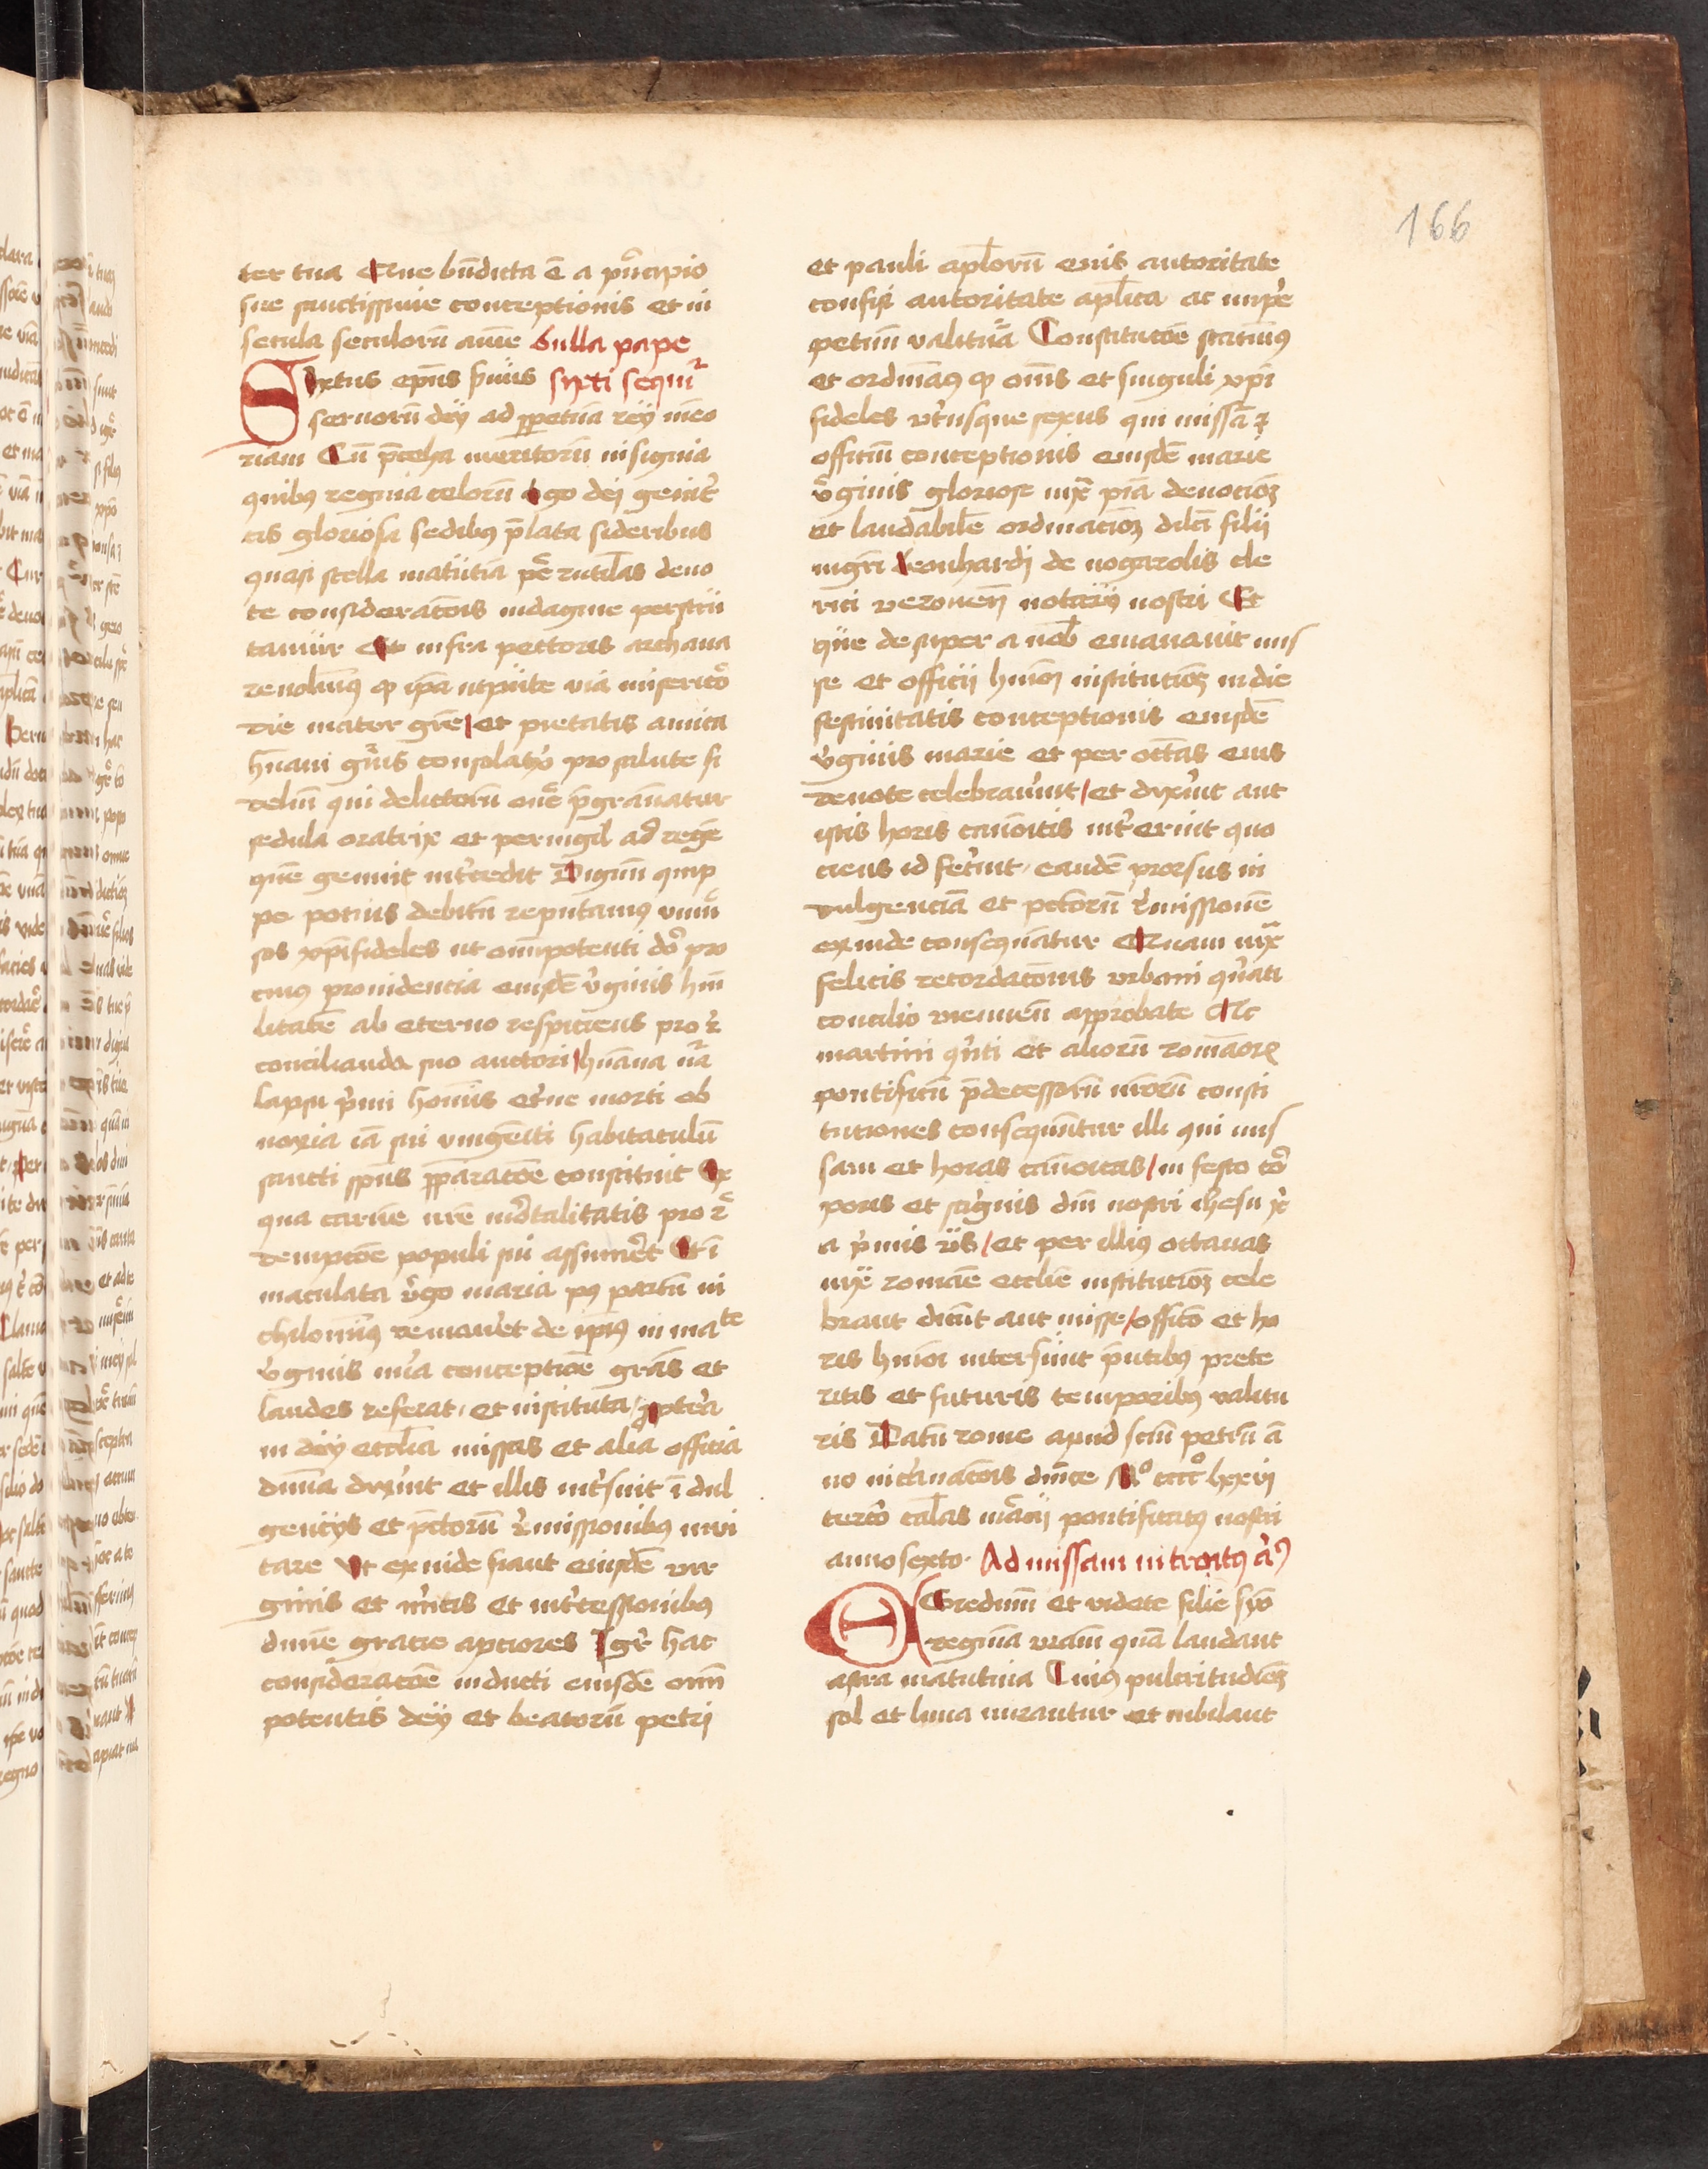 166
ter tua Que bn̄dicta ē a pͥncipio
sue sanctissime conceptionis et in
secula seculorū amē bulla pape
Sixtus ep̄us ẜuus sixti sequiͬ
seruorū dey ad ꝑpetuā rey mēo
riam Cū p̄celsa meritorū insignia
quibꝫ regina celorū v̓go dej genit̓
cis gloriosa sedibꝫ p̄lata sideribus
quasi stella matutīa p̄rutilās deuo
te considerac̄ois indagine perscru
tamur Et infra pectoris archana
reuoluimꝰ ꝙ ip̄a utpote via miserico̓
die mater gr̄e et pietatis amica
humani gn̄is consolatͥx pro salute fi
deliū qui delictorū on̄e p̄grauātur
sedula oratrix et peruigil ad regē
quē genuit int̓cedit Dignū quip
pe potius debitū reputamꝰ vniu̓
sos xp̄ifideles ut omnipotenti do̓ pro
cuiꝰ prouidentia eiusdē v̓ginis humi
litatē ab eterno respiciens pro r̓
concilianda suo auctori humana na̓
lapsu pͥmi hominis et̓ne morti ob
noxia iā sui vnigeniti habitaculū
sancti sp̄us p̄parac̄oe constituit Ex
qua carnē nr̄e mo̓talitatis pro r̓
dempc̄oe populi sui assumēt Et ī
maculata v̓go maria pꝰ partū ni
chilominꝰ remaner̓et de ipsiꝰ in mate
v̓ginis mira conceptioe gr̄as et
laudes referat et instituta p̓pterea
in dey ecclīa missas et alia officia
diuina dixer̓int et illis int̓fuint ī dul
gentijs et p̄ctorū r̓missionibꝫ inui
tare Vt exinde fiant eiusdē vir
ginis et mer̓itis et int̓cessionibꝫ
diuine gratie aptiores Igr̓ hac
considerac̄oe inducti eiusdē omni
potentis dey et beatorū petrj
et pauli apl̄orū eius autoritate
confisi autoritate apl̄ica ac imp̄e
petuū valituͣa Constituc̄oe statuimꝰ
et ordinamꝰ ꝙ om̄s et singuli xp̄i
fideles vtr̓iusque sexus qui missā ꝛ
officiū conceptionis eiusdē marie
v̓ginis gloriose iuxͣ piā deuocioꝫ
et laudabilē ordinacioꝫ dilc̄i filij
mgr̄i Leonhardi de nogarolis cle
rici veronen̄ notarij nostri Et
que desuper a nob̄ emanauit mis
se et officij huiuōi institucioꝫ in die
festiuitatis conceptionis eiusdē
v̓ginis marie et per octāas eius
deuote celebrauer̓int et dixer̓int aut
istis horis canōicis int̓erint quo
ciens id fecer̓int eandē prorsus in
dulgenciā et pctōrū r̓missionē
exinde consequātur Quam iuxͣ
felicis recordac̄onis vrbani quar̓ti
concilio viennen̄ approbate Ac
martini qͥnti et aliorū romanorꝫ
pontificū p̄decessorū nr̄orū consti
tutiones consequūtur illi qui mis
sam et horas canōicas in festo cor̓
poris et sāguinis dn̄i nostri ihesu xͥ
a pͥmis v̓s et per illiꝰ octauas
iuxͣ romāe ecclīe institucioꝫ cele
brant dicūt aut misse officō et ho
ris huiuōi intersūnt p̄ntibꝫ prete
ritis et futuris temporibꝫ valitu
ris Datū rome apud sctm̄ petrū ā
no incarnac̄ois dn̄ice Mº ccccº lxxvj
tercō caln̄as mar̓cij pontificatꝰ nostri
anno sexto. Ad missam introitꝰ
Egredimī et videte filie syō
reginā vrām quā laudant
astra matutina Cuiꝰ pulcritudīeꝫ
sol et luna mirantur et iubilant